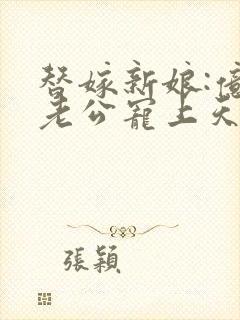 替嫁新娘:億
老公寵上天
張穎